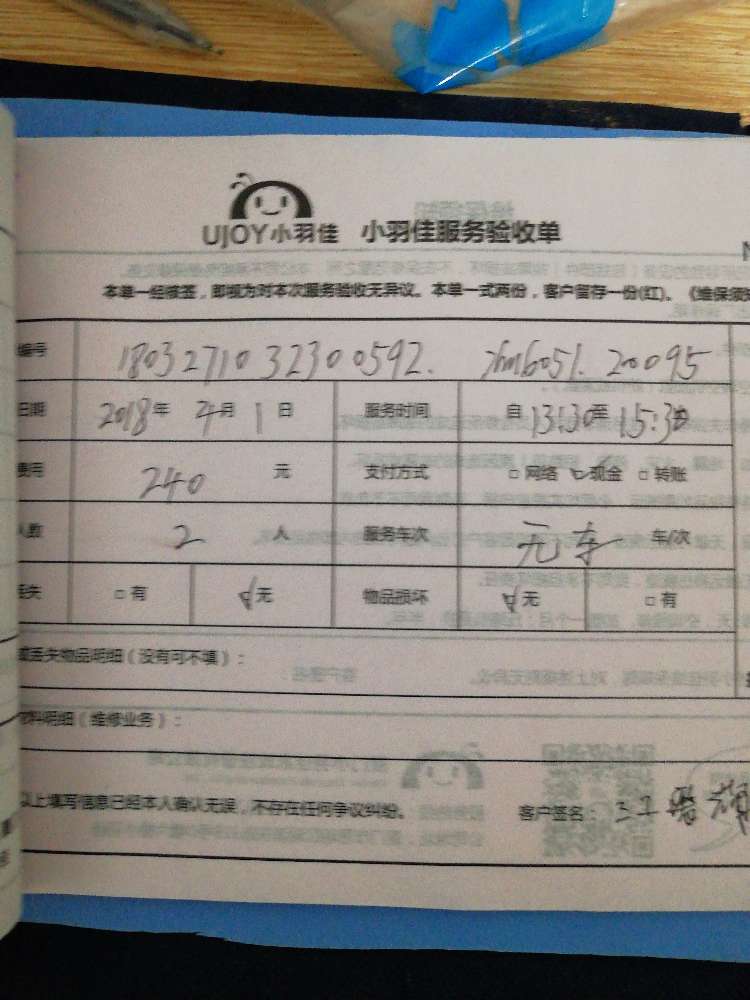 UJOY小羽佳 小羽佳服务验收单
本单一经核签，即视为对本次服务验收无异议。本单一式两份，客户留存一份(红)。《维保须知
编号 1803271032300592. 20095
日期 2018年 4月 1日 服务时间 自13:30至15:30
费用 240 元 支付方式 □网络 □现金 □转账
人数 2 人 服务车次 无车 车/次
丢失 □有 □无 物品损坏 □无 □有
或丢失物品明细（没有可不填）：
材料明细（维修业务）：
以上填写信息已经本人确认无误，不存在任何争议纠纷。 客户签名：